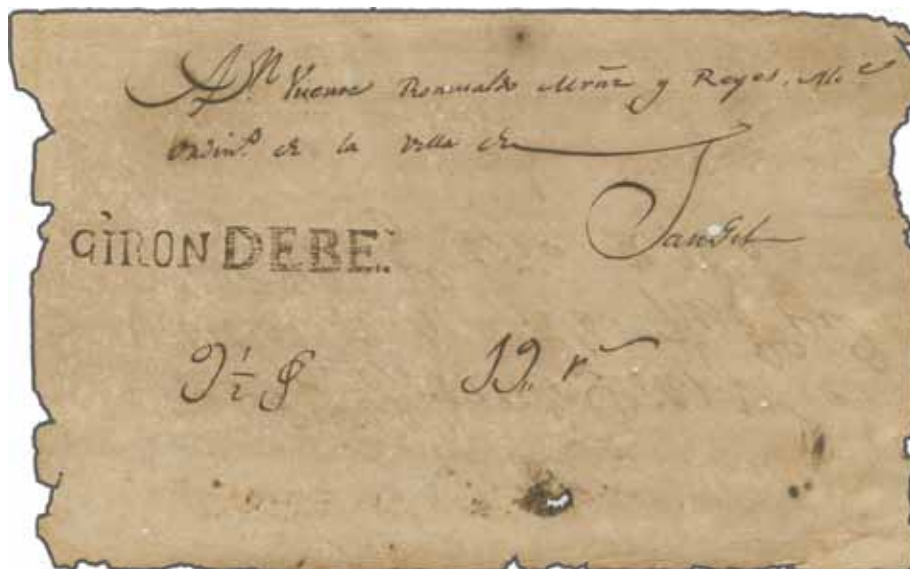 A Dn Vicente Romualdo Mrñz y Reyes. Alc.e
Ordin.o de la Villa de
SanGil
GIRON DEBE.
9 1/2 19 rs